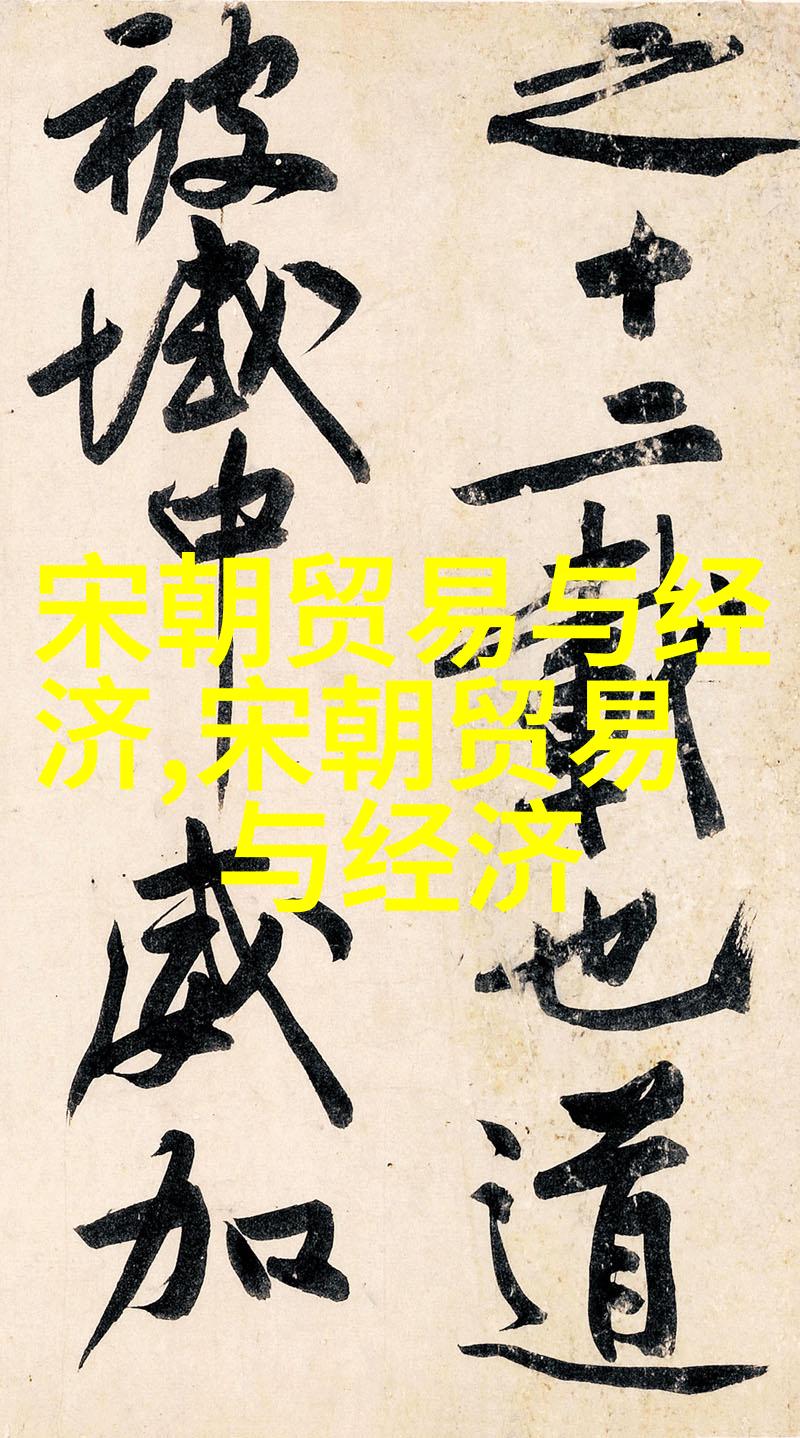 之十二載也道
被域中威加
宋朝贸易与经
济,宋朝贸易
与经济